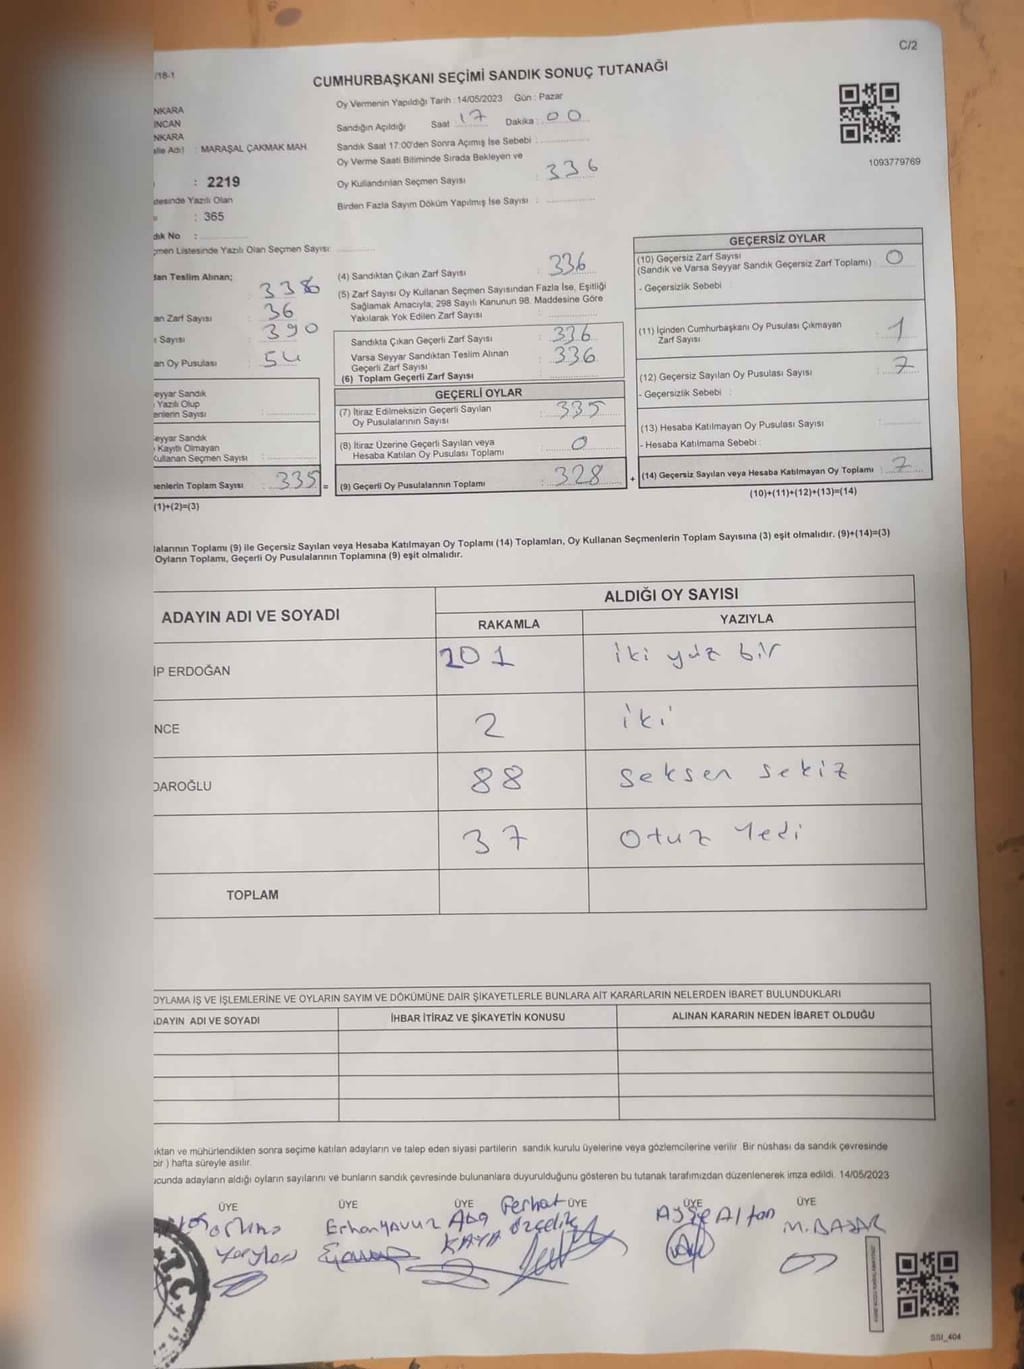 C/2
/18-1
CUMHURBAŞKANI SEÇİMİ SANDIK SONUÇ TUTANAĞI
NKARA
İNCAN
NKARA
alle Adı MARAŞAL ÇAKMAK MAH.
: 2219
desinde Yazılı Olan
: 365
dık No :
çmen Listesinde Yazılı Olan Seçmen Sayısı:
Oy Vermenin Yapıldığı Tarih : 14/05/2023 Gün : Pazar
Sandığın Açıldığı Saat 17 Dakika : 00
Sandık Saat 17:00'den Sonra Açımış İse Sebebi :
Oy Verme Saati Bitiminde Sırada Bekleyen ve
Oy Kullandırılan Seçmen Sayısı : 336
Birden Fazla Sayım Döküm Yapılmış İse Sayısı :
1093779769
dan Teslim Alınan;
338
an Zarf Sayısı 36
ı Sayısı 390
an Oy Pusulası 54
eyyar Sandık
Yazılı Olup
enlerin Sayısı :
eyyar Sandık
Kayıtlı Olmayan
Kullanan Seçmen Sayısı :
nenlerin Toplam Sayısı : 335 =
(1)+(2)=(3)
(4) Sandıktan Çıkan Zarf Sayısı : 336
(5) Zarf Sayısı Oy Kullanan Seçmen Sayısından Fazla İse, Eşitliği
Sağlamak Amacıyla; 298 Sayılı Kanunun 98. Maddesine Göre
Yakılarak Yok Edilen Zarf Sayısı :
Sandıkta Çıkan Geçerli Zarf Sayısı : 336
Varsa Seyyar Sandıktan Teslim Alınan
Geçerli Zarf Sayısı : 336
(6) Toplam Geçerli Zarf Sayısı :
GEÇERLİ OYLAR
(7) İtiraz Edilmeksizin Geçerli Sayılan
Oy Pusulalarının Sayısı : 335
(8) İtiraz Üzerine Geçerli Sayılan veya
Hesaba Katılan Oy Pusulası Toplamı : 0
(9) Geçerli Oy Pusulalarının Toplamı : 328 +
GEÇERSİZ OYLAR
(10) Geçersiz Zarf Sayısı
(Sandık ve Varsa Seyyar Sandık Geçersiz Zarf Toplamı) : 0
- Geçersizlik Sebebi :
(11) İçinden Cumhurbaşkanı Oy Pusulası Çıkmayan
Zarf Sayısı : 1
(12) Geçersiz Sayılan Oy Pusulası Sayısı : 7
- Geçersizlik Sebebi :
(13) Hesaba Katılmayan Oy Pusulası Sayısı :
- Hesaba Katılmama Sebebi :
(14) Geçersiz Sayılan veya Hesaba Katılmayan Oy Toplamı : 7
(10)+(11)+(12)+(13)=(14)
lalarının Toplamı (9) ile Geçersiz Sayılan veya Hesaba Katılmayan Oy Toplamı (14) Toplamları, Oy Kullanan Seçmenlerin Toplam Sayısına (3) eşit olmalıdır. (9)+(14)=(3)
Oyların Toplamı, Geçerli Oy Pusulalarının Toplamına (9) eşit olmalıdır.
ADAYIN ADI VE SOYADI
ALDIĞI OY SAYISI
RAKAMLA YAZIYLA
İP ERDOĞAN 201 iki yüz bir
NCE 2 iki
DAROĞLU 88 seksen sekiz
37 Otuz Yedi
TOPLAM
OYLAMA İŞ VE İŞLEMLERİNE VE OYLARIN SAYIM VE DÖKÜMÜNE DAİR ŞİKAYETLERLE BUNLARA AİT KARARLARIN NELERDEN İBARET BULUNDUKLARI
DAYIN ADI VE SOYADI İHBAR İTİRAZ VE ŞİKAYETİN KONUSU ALINAN KARARIN NEDEN İBARET OLDUĞU
ıktan ve mühürlendikten sonra seçime katılan adayların ve talep eden siyasi partilerin sandık kurulu üyelerine veya gözlemcilerine verilir. Bir nüshası da sandık çevresinde
bir ) hafta süreyle asılır.
ucunda adayların aldığı oyların sayılarını ve bunların sandık çevresinde bulunanlara duyurulduğunu gösteren bu tutanak tarafımızdan düzenlenerek imza edildi. 14/05/2023
ÜYE ÜYE ÜYE ÜYE ÜYE ÜYE
Erhan YAVUZ
KAYA
Ferhat
Özçelik
Ayşe Altan
M. BAŞAR
T.C.
SSI_404